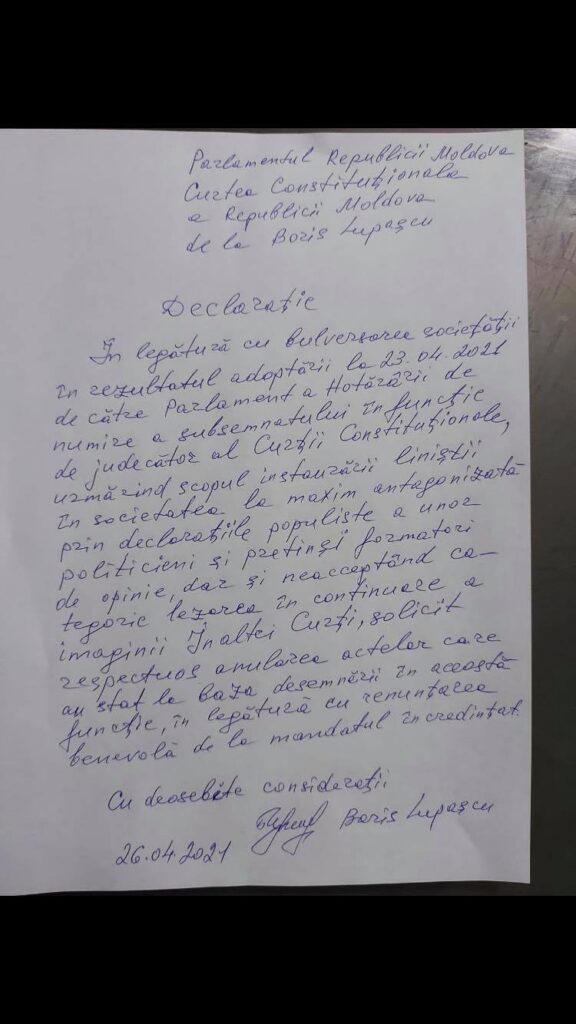 Parlamentul Republicii Moldova
Curtea Constituțională
a Republicii Moldova
de la Boris Lupașcu
Declarație
În legătură cu bulversarea societății
în rezultatul adoptării la 23.04.2021
de către Parlament a Hotărârii de
numire a subsemnatului în funcție
de judecător al Curții Constituționale,
urmărind scopul instaurării liniștii
în societatea la maxim antagonizată
prin declarațiile populiste a unor
politicieni și pretinși formatori
de opinie, dar și neacceptând ca-
tegoric lezarea în continuare a
imaginii Înaltei Curți, solicit
respectuos anularea actelor care
au stat la baza desemnării în această
funcție, în legătură cu renunțarea
benevolă de la mandatul încredințat.
Cu deosebite considerații
Boris Lupașcu
26.04.2021